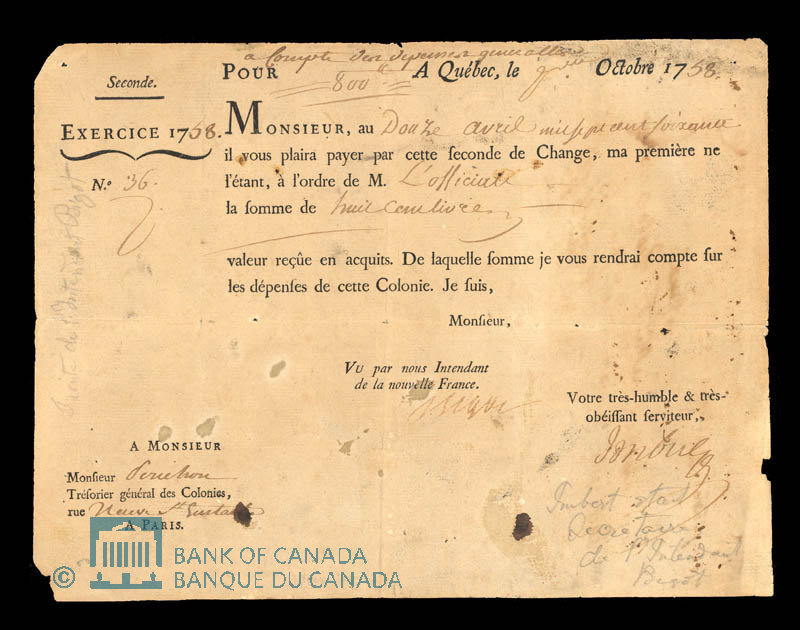 a Compte des depenses generalles
Seconde.
POUR 800 A Québec, le Octobre 1758.
EXERCICE 1758.
MONSIEUR, au Douze avril mil sept cent soixante
il vous plaira payer par cette ſeconde de Change, ma première ne
N.º 36.
l'étant, à l'ordre de M. L'officiale
la ſomme de huit cent livres
valeur reçûe en acquits. De laquelle ſomme je vous rendrai compte ſur
les dépenſes de cette Colonie. Je ſuis,
Monſieur,
VU par nous Intendant
de la nouvelle France.
Bigot
Votre très-humble & très-
obéiſſant ſerviteur,
Imbert
Traite de l'Intendant Bigot
A MONSIEUR
Monſieur Perichon
Tréſorier général des Colonies,
rue Neuve St Eustache
A PARIS.
Imbert etait
Secretaire
de l'Intendant
Bigot
© BANK OF CANADA
BANQUE DU CANADA